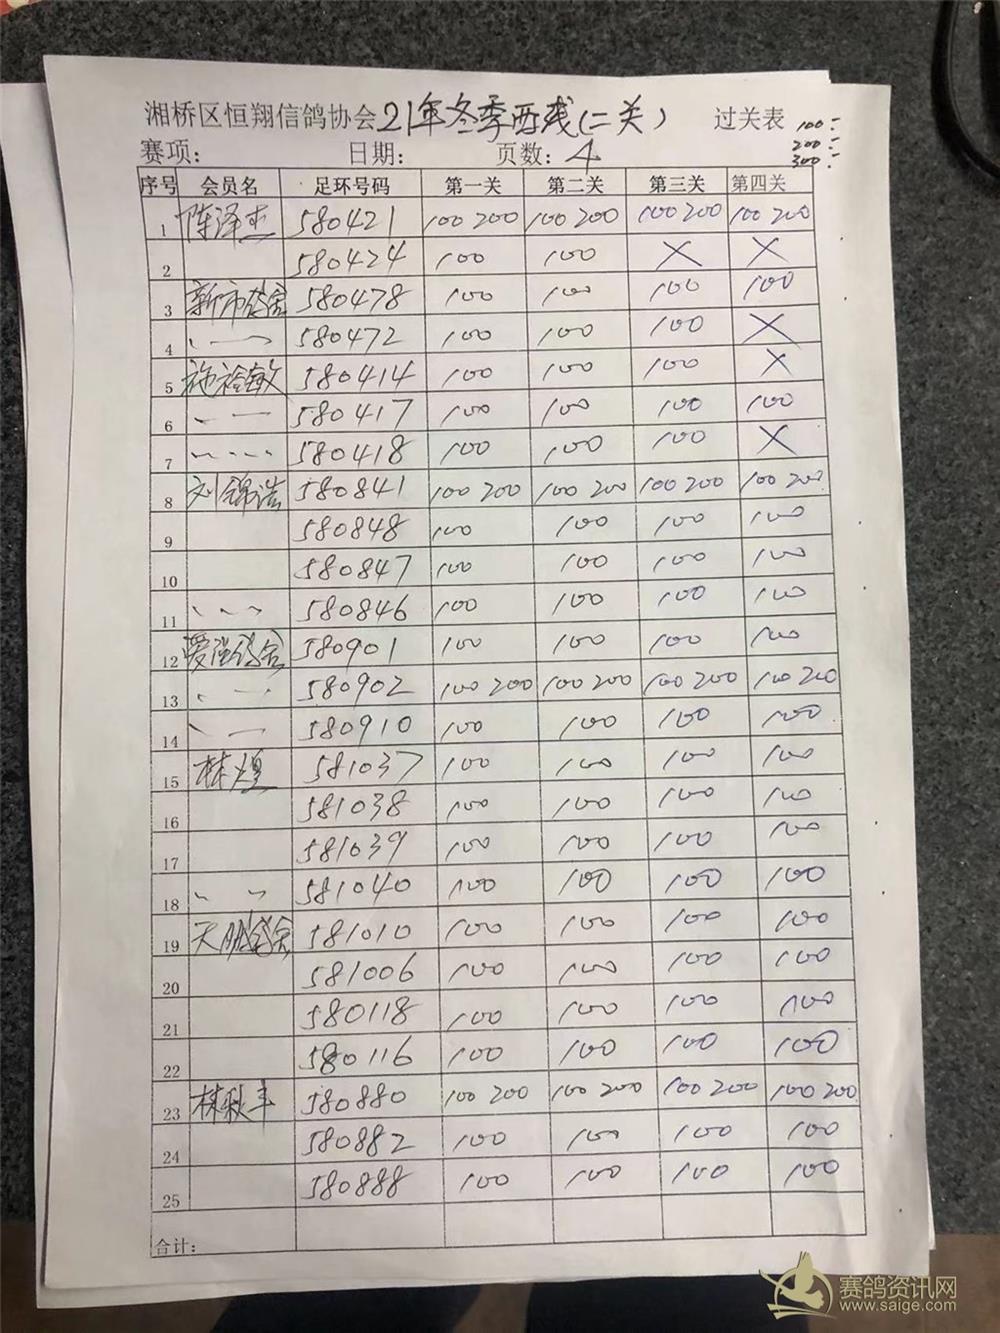 湘桥区恒翔信鸽协会21年冬季西线(二关) 过关表
100:
200:
300:
赛项: 日期: 页数: 4
序号 会员名 足环号码 第一关 第二关 第三关 第四关
1 陈泽杰 580421 100 200 100 200 100 200 100 200
2 580424 100 100 X X
3 新市鸽舍 580478 100 100 100 100
4 、一、 580472 100 100 100 X
5 施裕敏 580414 100 100 100 X
6 、一 580417 100 100 100 100
7 、、、、 580418 100 100 100 X
8 刘锦浩 580841 100 200 100 200 100 200 100 200
9 580848 100 100 100 100
10 580847 100 100 100 100
11 、、、 580846 100 100 100 100
12 爱强鸽舍 580901 100 100 100 100
13 、一 580902 100 200 100 200 100 200 100 200
14 、一 580910 100 100 100 100
15 林煌 581037 100 100 100 100
16 581038 100 100 100 100
17 581039 100 100 100 100
18 、、 581040 100 100 100 100
19 天朋鸽舍 581010 100 100 100 100
20 581006 100 100 100 100
21 580118 100 100 100 100
22 580116 100 100 100 100
23 林秋丰 580880 100 200 100 200 100 200 100 200
24 580882 100 100 100 100
25 580888 100 100 100 100
合计:
赛鸽资讯网
www.saige.com